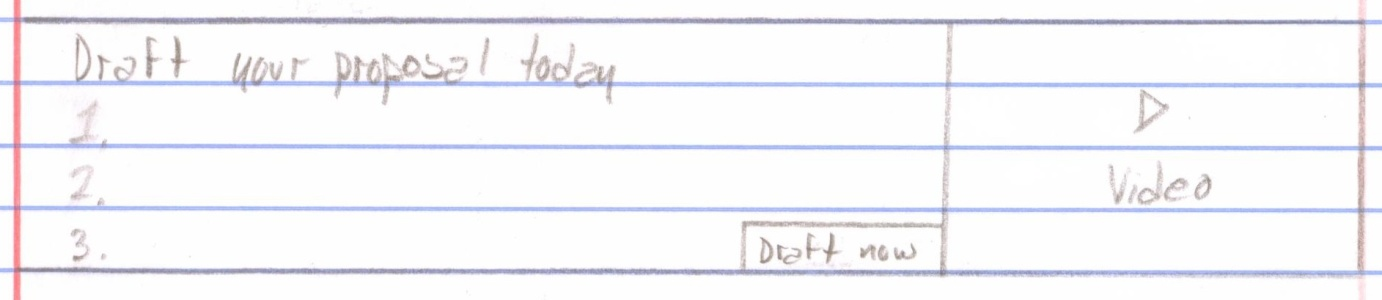 Draft your proposal today
1.
2.
3.
Draft now
Video